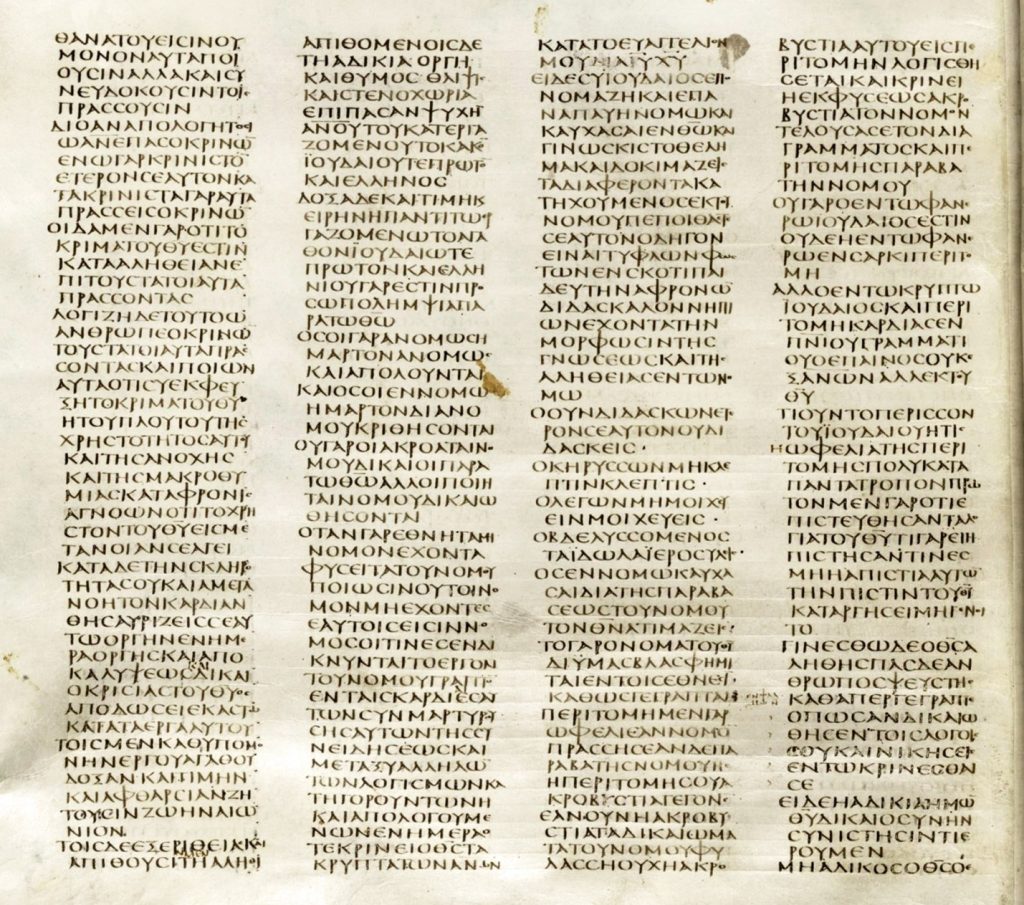 ΘΑΝΑΤΟΥΕΙϹΙΝΟΥ
ΜΟΝΟΝΑΥΤΑΠΟΙ
ΟΥϹΙΝΑΛΛΑΚΑΙϹΥ
ΝΕΥΔΟΚΟΥϹΙΝΤΟΙϹ
ΠΡΑϹϹΟΥϹΙΝ
ΔΙΟΑΝΑΠΟΛΟΓΗΤΟϹΕΙ
ΩΑΝΕΠΑϹΟΚΡΙΝΩ
ΕΝΩΓΑΡΚΡΙΝΙϹΤΟ
ΕΤΕΡΟΝϹΕΑΥΤΟΝΚΑ
ΤΑΚΡΙΝΙϹΤΑΓΑΡΑΥΤΑ
ΠΡΑϹϹΕΙϹΟΚΡΙΝΩ
ΟΙΔΑΜΕΝΓΑΡΟΤΙΤΟ
ΚΡΙΜΑΤΟΥΘΥΕϹΤΙΝ
ΚΑΤΑΑΛΗΘΕΙΑΝΕ
ΠΙΤΟΥϹΤΑΤΟΙΑΥΤΑ
ΠΡΑϹϹΟΝΤΑϹ
ΛΟΓΙΖΗΔΕΤΟΥΤΟΩ
ΑΝΘΡΩΠΕΟΚΡΙΝΩ
ΤΟΥϹΤΑΤΟΙΑΥΤΑΠΡΑϹ
ϹΟΝΤΑϹΚΑΙΠΟΙΩΝ
ΑΥΤΑΟΤΙϹΥΕΚΦΕΥ
ΞΗΤΟΚΡΙΜΑΤΟΥΘΥ
ΗΤΟΥΠΛΟΥΤΟΥΤΗϹ
ΧΡΗϹΤΟΤΗΤΟϹΑΥΤΟΥ
ΚΑΙΤΗϹΑΝΟΧΗϹ
ΚΑΙΤΗϹΜΑΚΡΟΘΥ
ΜΙΑϹΚΑΤΑΦΡΟΝΙϹ
ΑΓΝΟΩΝΟΤΙΤΟΧΡΗ
ϹΤΟΝΤΟΥΘΥΕΙϹΜΕ
ΤΑΝΟΙΑΝϹΕΑΓΕΙ
ΚΑΤΑΔΕΤΗΝϹΚΛΗΡΟ
ΤΗΤΑϹΟΥΚΑΙΑΜΕΤΑ
ΝΟΗΤΟΝΚΑΡΔΙΑΝ
ΘΗϹΑΥΡΙΖΕΙϹϹΕΑΥ
ΤΩΟΡΓΗΝΕΝΗΜΕ
ΡΑΟΡΓΗϹΚΑΙΑΠΟ
ΚΑΙ
ΚΑΛΥΨΕΩϹΔΙΚΑΙ
ΟΚΡΙϹΙΑϹΤΟΥΘΥΟϹ
ΑΠΟΔΩϹΕΙΕΚΑϹΤΩ
ΚΑΤΑΤΑΕΡΓΑΑΥΤΟΥ
ΤΟΙϹΜΕΝΚΑΘΥΠΟΜΟ
ΝΗΝΕΡΓΟΥΑΓΑΘΟΥ
ΔΟΞΑΝΚΑΙΤΙΜΗΝ
ΚΑΙΑΦΘΑΡϹΙΑΝΖΗ
ΤΟΥϹΙΝΖΩΗΝΑΙΩ
ΝΙΟΝ
ΤΟΙϹΔΕΕΞΕΡΙΘΕΙΑϹΚΑΙ
ΑΠΙΘΟΥϹΙΤΗΑΛΗΘΙ
ΑΠΙΘΟΜΕΝΟΙϹΔΕ
ΤΗΑΔΙΚΙΑΟΡΓΗ
ΚΑΙΘΥΜΟϹΘΛΙΨΙϹ
ΚΑΙϹΤΕΝΟΧΩΡΙΑ
ΕΠΙΠΑϹΑΝΨΥΧΗ
ΑΝΟΥΤΟΥΚΑΤΕΡΓΑ
ΖΟΜΕΝΟΥΤΟΚΑΚΟ
ΪΟΥΔΑΙΟΥΤΕΠΡΩΤΟ
ΚΑΙΕΛΛΗΝΟϹ
ΔΟΞΑΔΕΚΑΙΤΙΜΗΚΑΙ
ΕΙΡΗΝΗΠΑΝΤΙΤΩΕΡ
ΓΑΖΟΜΕΝΩΤΟΑΓΑ
ΘΟΝΪΟΥΔΑΙΩΤΕ
ΠΡΩΤΟΝΚΑΙΕΛΛΗ
ΝΙΟΥΓΑΡΕϹΤΙΝΠΡΟ
ϹΩΠΟΛΗΜΨΙΑΠΑ
ΡΑΤΩΘΩ
ΟϹΟΙΓΑΡΑΝΟΜΩϹΗ
ΜΑΡΤΟΝΑΝΟΜΩϹ
ΚΑΙΑΠΟΛΟΥΝΤΑΙ
ΚΑΙΟϹΟΙΕΝΝΟΜΩ
ΗΜΑΡΤΟΝΔΙΑΝΟ
ΜΟΥΚΡΙΘΗϹΟΝΤΑΙ
ΟΥΓΑΡΟΙΑΚΡΟΑΤΑΙΝΟ
ΜΟΥΔΙΚΑΙΟΙΠΑΡΑ
ΤΩΘΩΑΛΛΟΙΠΟΙΗ
ΤΑΙΝΟΜΟΥΔΙΚΑΙΩ
ΘΗϹΟΝΤΑΙ
ΟΤΑΝΓΑΡΕΘΝΗΤΑΜΗ
ΝΟΜΟΝΕΧΟΝΤΑ
ΦΥϹΕΙΤΑΤΟΥΝΟΜΟΥ
ΠΟΙΩϹΙΝΟΥΤΟΙΝΟ
ΜΟΝΜΗΕΧΟΝΤΕϹ
ΕΑΥΤΟΙϹΕΙϹΙΝΝΟ
ΜΟϹΟΙΤΙΝΕϹΕΝΔΙ
ΚΝΥΝΤΑΙΤΟΕΡΓΟΝ
ΤΟΥΝΟΜΟΥΓΡΑΠΤΟ
ΕΝΤΑΙϹΚΑΡΔΙΑΙϹΑΥ
ΤΩΝϹΥΝΜΑΡΤΥΡΟΥ
ϹΗϹΑΥΤΩΝΤΗϹϹΥ
ΝΕΙΔΗϹΕΩϹΚΑΙ
ΜΕΤΑΞΥΑΛΛΗΛΩ
ΤΩΝΛΟΓΙϹΜΩΝΚΑ
ΤΗΓΟΡΟΥΝΤΩΝΗ
ΚΑΙΑΠΟΛΟΓΟΥΜΕ
ΝΩΝΕΝΗΜΕΡΑΟ
ΤΕΚΡΙΝΕΙΟΘϹΤΑ
ΚΡΥΠΤΑΤΩΝΑΝΩΝ
ΚΑΤΑΤΟΕΥΑΓΓΕΛΙΟΝ
ΜΟΥΔΙΑΙΥΧΥ
ΕΙΔΕϹΥΙΟΥΔΑΙΟϹΕΠΟ
ΝΟΜΑΖΗΚΑΙΕΠΑ
ΝΑΠΑΥΗΝΟΜΩΚΑΙ
ΚΑΥΧΑϹΑΙΕΝΘΩΚΑΙ
ΓΙΝΩϹΚΙϹΤΟΘΕΛΗ
ΜΑΚΑΙΔΟΚΙΜΑΖΕΙϹ
ΤΑΔΙΑΦΕΡΟΝΤΑΚΑ
ΤΗΧΟΥΜΕΝΟϹΕΚΤΟΥ
ΝΟΜΟΥΠΕΠΟΙΘΑϹ
ϹΕΑΥΤΟΝΟΔΗΓΟΝ
ΕΙΝΑΙΤΥΦΛΩΝΦΩϹ
ΤΩΝΕΝϹΚΟΤΙΠΑΙ
ΔΕΥΤΗΝΑΦΡΟΝΩ
ΔΙΔΑϹΚΑΛΟΝΝΗΠΙ
ΩΝΕΧΟΝΤΑΤΗΝ
ΜΟΡΦΩϹΙΝΤΗϹ
ΓΝΩϹΕΩϹΚΑΙΤΗϹ
ΑΛΗΘΕΙΑϹΕΝΤΩΝΟ
ΜΩ
ΟΟΥΝΔΙΔΑϹΚΩΝΕΤΕ
ΡΟΝϹΕΑΥΤΟΝΟΥΔΙ
ΔΑϹΚΕΙϹ·
ΟΚΗΡΥϹϹΩΝΜΗΚΛΕ
ΠΤΙΝΚΛΕΠΤΙϹ·
ΟΛΕΓΩΝΜΗΜΟΙΧΕΥ
ΕΙΝΜΟΙΧΕΥΕΙϹ·
ΟΒΔΕΛΥϹϹΟΜΕΝΟϹ
ΤΑΪΔΩΛΑΪΕΡΟϹΥΛΙϹ·
ΟϹΕΝΝΟΜΩΚΑΥΧΑ
ϹΑΙΔΙΑΤΗϹΠΑΡΑΒΑ
ϹΕΩϹΤΟΥΝΟΜΟΥ
ΤΟΝΘΝΑΤΙΜΑΖΕΙϹ
ΤΟΓΑΡΟΝΟΜΑΤΟΥΘΥ
ΔΙΥΜΑϹΒΛΑϹΦΗΜΙ
ΤΑΙΕΝΤΟΙϹΕΘΝΕϹΙ
ΚΑΘΩϹΓΕΓΡΑΠΤΑΙ
ΠΕΡΙΤΟΜΗΜΕΝΓΑΡ
ΩΦΕΛΙΕΑΝΝΟΜΟ
ΠΡΑϹϹΗϹΕΑΝΔΕΠΑ
ΡΑΒΑΤΗϹΝΟΜΟΥΗϹ
ΗΠΕΡΙΤΟΜΗϹΟΥΑ
ΚΡΟΒΥϹΤΙΑΓΕΓΟΝΕ
ΕΑΝΟΥΝΗΑΚΡΟΒΥ
ϹΤΙΑΤΑΔΙΚΑΙΩΜΑ
ΤΑΤΟΥΝΟΜΟΥΦΥ
ΛΑϹϹΗΟΥΧΗΑΚΡΟ
ΒΥϹΤΙΑΑΥΤΟΥΕΙϹΠΕ
ΡΙΤΟΜΗΝΛΟΓΙϹΘΗ
ϹΕΤΑΙΚΑΙΚΡΙΝΕΙ
ΗΕΚΦΥϹΕΩϹΑΚΡΟ
ΒΥϹΤΙΑΤΟΝΝΟΜΟΝ
ΤΕΛΟΥϹΑϹΕΤΟΝΔΙΑ
ΓΡΑΜΜΑΤΟϹΚΑΙΠΕ
ΡΙΤΟΜΗϹΠΑΡΑΒΑ
ΤΗΝΝΟΜΟΥ
ΟΥΓΑΡΟΕΝΤΩΦΑΝΕ
ΡΩΙΟΥΔΑΙΟϹΕϹΤΙΝ
ΟΥΔΕΗΕΝΤΩΦΑΝΕ
ΡΩΕΝϹΑΡΚΙΠΕΡΙΤΟ
ΜΗ
ΑΛΛΟΕΝΤΩΚΡΥΠΤΩ
ΪΟΥΔΑΙΟϹΚΑΙΠΕΡΙ
ΤΟΜΗΚΑΡΔΙΑϹΕΝ
ΠΝΙΟΥΓΡΑΜΜΑΤΙ
ΟΥΟΕΠΑΙΝΟϹΟΥΚΕ
ΞΑΝΩΝΑΛΛΕΚΤΟΥ
ΘΥ
ΤΙΟΥΝΤΟΠΕΡΙϹϹΟΝ
ΤΟΥΪΟΥΔΑΙΟΥΗΤΙϹ
ΗΩΦΕΛΙΑΤΗϹΠΕΡΙ
ΤΟΜΗϹΠΟΛΥΚΑΤΑ
ΠΑΝΤΑΤΡΟΠΟΝΠΡΩ
ΤΟΝΜΕΝΓΑΡΟΤΙΕ
ΠΙϹΤΕΥΘΗϹΑΝΤΑΛΟ
ΓΙΑΤΟΥΘΥΤΙΓΑΡΕΙΗ
ΠΙϹΤΗϹΑΝΤΙΝΕϹ
ΜΗΗΑΠΙϹΤΙΑΑΥΤΩ
ΤΗΝΠΙϹΤΙΝΤΟΥΘΥ
ΚΑΤΑΡΓΗϹΕΙΜΗΓΕΝΟΙ
ΤΟ
ΓΙΝΕϹΘΩΔΕΟΘϹΑ
ΛΗΘΗϹΠΑϹΔΕΑΝ
ΘΡΩΠΟϹΨΕΥϹΤΗϹ
ΚΑΘΑΠΕΡΓΕΓΡΑΠΤΑΙ
ΟΠΩϹΑΝΔΙΚΑΙΩ
ΘΗϹΕΝΤΟΙϹΛΟΓΟΙϹ
ϹΟΥΚΑΙΝΙΚΗϹΕΙϹ
ΕΝΤΩΚΡΙΝΕϹΘΑΙ
ϹΕ
ΕΙΔΕΗΑΔΙΚΙΑΗΜΩ
ΘΥΔΙΚΑΙΟϹΥΝΗΝ
ϹΥΝΙϹΤΗϹΙΝΤΙΕ
ΡΟΥΜΕΝ
ΜΗΑΔΙΚΟϹΟΘϹΟ